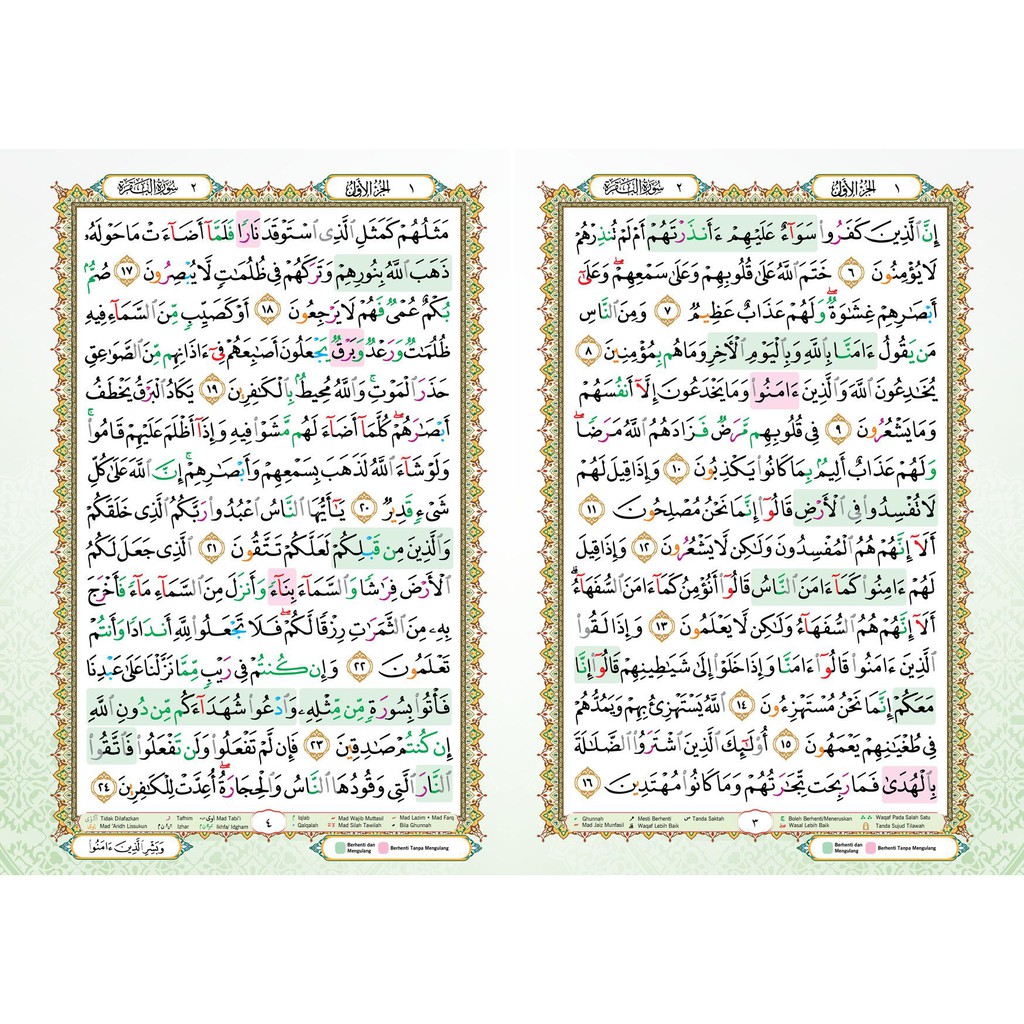 الجزء الأول ١
٢ سورة البقرة
إِنَّ ٱلَّذِينَ كَفَرُوا۟ سَوَآءٌ عَلَيْهِمْ ءَأَنذَرْتَهُمْ أَمْ لَمْ تُنذِرْهُمْ
لَا يُؤْمِنُونَ ٦ خَتَمَ ٱللَّهُ عَلَىٰ قُلُوبِهِمْ وَعَلَىٰ سَمْعِهِمْ ۖ وَعَلَىٰٓ
أَبْصَٰرِهِمْ غِشَٰوَةٌ ۖ وَلَهُمْ عَذَابٌ عَظِيمٌ ٧ وَمِنَ ٱلنَّاسِ
مَن يَقُولُ ءَامَنَّا بِٱللَّهِ وَبِٱلْيَوْمِ ٱلْءَاخِرِ وَمَا هُم بِمُؤْمِنِينَ ٨
يُخَٰدِعُونَ ٱللَّهَ وَٱلَّذِينَ ءَامَنُوا۟ وَمَا يَخْدَعُونَ إِلَّآ أَنفُسَهُمْ
وَمَا يَشْعُرُونَ ٩ فِى قُلُوبِهِم مَّرَضٌ فَزَادَهُمُ ٱللَّهُ مَرَضًا ۖ
وَلَهُمْ عَذَابٌ أَلِيمٌۢ بِمَا كَانُوا۟ يَكْذِبُونَ ١٠ وَإِذَا قِيلَ لَهُمْ
لَا تُفْسِدُوا۟ فِى ٱلْأَرْضِ قَالُوٓا۟ إِنَّمَا نَحْنُ مُصْلِحُونَ ١١
أَلَآ إِنَّهُمْ هُمُ ٱلْمُفْسِدُونَ وَلَٰكِن لَّا يَشْعُرُونَ ١٢ وَإِذَا قِيلَ
لَهُمْ ءَامِنُوا۟ كَمَآ ءَامَنَ ٱلنَّاسُ قَالُوٓا۟ أَنُؤْمِنُ كَمَآ ءَامَنَ ٱلسُّفَهَآءُ ۗ
أَلَآ إِنَّهُمْ هُمُ ٱلسُّفَهَآءُ وَلَٰكِن لَّا يَعْلَمُونَ ١٣ وَإِذَا لَقُوا۟
ٱلَّذِينَ ءَامَنُوا۟ قَالُوٓا۟ ءَامَنَّا وَإِذَا خَلَوْا۟ إِلَىٰ شَيَٰطِينِهِمْ قَالُوٓا۟ إِنَّا
مَعَكُمْ إِنَّمَا نَحْنُ مُسْتَهْزِءُونَ ١٤ ٱللَّهُ يَسْتَهْزِئُ بِهِمْ وَيَمُدُّهُمْ
فِى طُغْيَٰنِهِمْ يَعْمَهُونَ ١٥ أُو۟لَٰٓئِكَ ٱلَّذِينَ ٱشْتَرَوُا۟ ٱلضَّلَٰلَةَ
بِٱلْهُدَىٰ فَمَا رَبِحَت تِّجَٰرَتُهُمْ وَمَا كَانُوا۟ مُهْتَدِينَ ١٦
Ghunnah Mesti Berhenti Tanda Saktah ٣ Boleh Berhenti/Meneruskan Waqaf Pada Salah Satu
Mad Jaiz Munfasil Waqaf Lebih Baik Wasal Lebih Baik Tanda Sujud Tilawah
Berhenti dan Mengulang Berhenti Tanpa Mengulang
الجزء الأول ١
٢ سورة البقرة
مَثَلُهُمْ كَمَثَلِ ٱلَّذِى ٱسْتَوْقَدَ نَارًا فَلَمَّآ أَضَآءَتْ مَا حَوْلَهُۥ
ذَهَبَ ٱللَّهُ بِنُورِهِمْ وَتَرَكَهُمْ فِى ظُلُمَٰتٍ لَّا يُبْصِرُونَ ١٧ صُمٌّۢ
بُكْمٌ عُمْىٌ فَهُمْ لَا يَرْجِعُونَ ١٨ أَوْ كَصَيِّبٍ مِّنَ ٱلسَّمَآءِ فِيهِ
ظُلُمَٰتٌ وَرَعْدٌ وَبَرْقٌ يَجْعَلُونَ أَصَٰبِعَهُمْ فِىٓ ءَاذَانِهِم مِّنَ ٱلصَّوَٰعِقِ
حَذَرَ ٱلْمَوْتِ ۚ وَٱللَّهُ مُحِيطٌۢ بِٱلْكَٰفِرِينَ ١٩ يَكَادُ ٱلْبَرْقُ يَخْطَفُ
أَبْصَٰرَهُمْ ۖ كُلَّمَآ أَضَآءَ لَهُم مَّشَوْا۟ فِيهِ وَإِذَآ أَظْلَمَ عَلَيْهِمْ قَامُوا۟ ۚ
وَلَوْ شَآءَ ٱللَّهُ لَذَهَبَ بِسَمْعِهِمْ وَأَبْصَٰرِهِمْ ۚ إِنَّ ٱللَّهَ عَلَىٰ كُلِّ
شَىْءٍ قَدِيرٌ ٢٠ يَٰٓأَيُّهَا ٱلنَّاسُ ٱعْبُدُوا۟ رَبَّكُمُ ٱلَّذِى خَلَقَكُمْ
وَٱلَّذِينَ مِن قَبْلِكُمْ لَعَلَّكُمْ تَتَّقُونَ ٢١ ٱلَّذِى جَعَلَ لَكُمُ
ٱلْأَرْضَ فِرَٰشًا وَٱلسَّمَآءَ بِنَآءً وَأَنزَلَ مِنَ ٱلسَّمَآءِ مَآءً فَأَخْرَجَ
بِهِۦ مِنَ ٱلثَّمَرَٰتِ رِزْقًا لَّكُمْ ۖ فَلَا تَجْعَلُوا۟ لِلَّهِ أَندَادًا وَأَنتُمْ
تَعْلَمُونَ ٢٢ وَإِن كُنتُمْ فِى رَيْبٍ مِّمَّا نَزَّلْنَا عَلَىٰ عَبْدِنَا
فَأْتُوا۟ بِسُورَةٍ مِّن مِّثْلِهِۦ وَٱدْعُوا۟ شُهَدَآءَكُم مِّن دُونِ ٱللَّهِ
إِن كُنتُمْ صَٰدِقِينَ ٢٣ فَإِن لَّمْ تَفْعَلُوا۟ وَلَن تَفْعَلُوا۟ فَٱتَّقُوا۟
ٱلنَّارَ ٱلَّتِى وَقُودُهَا ٱلنَّاسُ وَٱلْحِجَارَةُ ۖ أُعِدَّتْ لِلْكَٰفِرِينَ ٢٤
Tidak Dilafazkan Tafhim Mad Tabi'i ٤ Iqlab Mad Wajib Muttasil Mad Lazim Mad Farq
Mad 'Aridh Lissukun Izhar Ikhfa' Idgham Qalqalah Mad Silah Tawilah Bila Ghunnah
وَبَشِّرِ ٱلَّذِينَ ءَامَنُوا۟
Berhenti dan Mengulang Berhenti Tanpa Mengulang